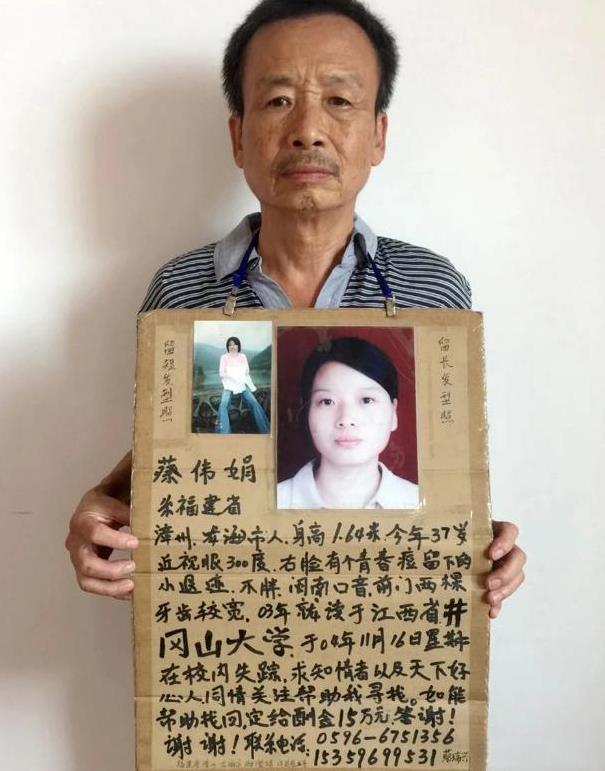 留短发型照
留长发型照
蔡伟娟
系福建省
漳州.龙海市人.身高1.64米.今年37岁
近视眼300度.右脸有个青春痘留下的
小退迹.不胖.闽南口音.前门两棵
牙齿较宽.03年就读于江西省井
冈山大学.于04年11月16日星期
在校内失踪.求知情者以及天下好
心人同情关注帮助我寻找.如能
帮助找回定给酬金15万元答谢!
谢谢!联系电话:0596-6751356
15359699531